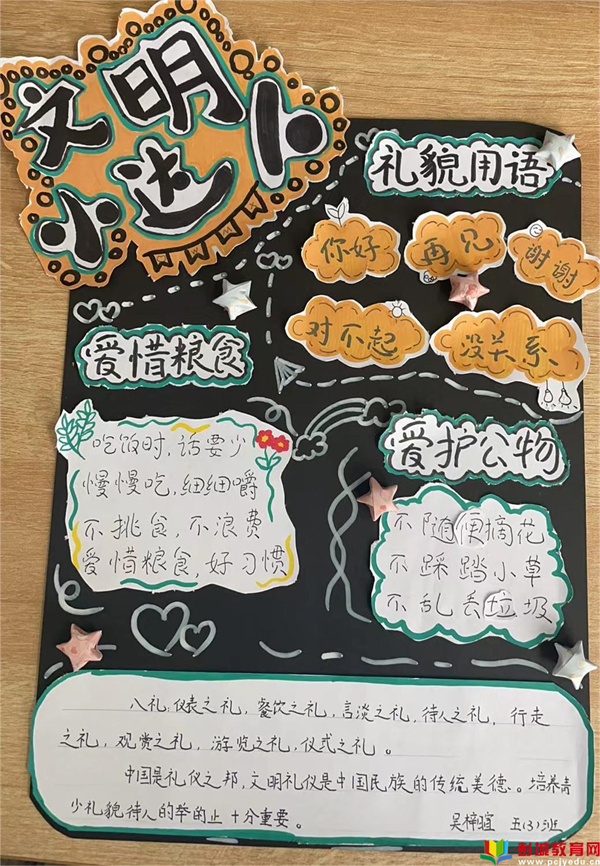 文明
小达人
礼貌用语
你好
再见
谢谢
对不起
没关系
爱惜粮食
吃饭时,话要少
慢慢吃,细细嚼
不挑食,不浪费
爱惜粮食,好习惯
爱护公物
不随便摘花
不踩踏小草
不乱丢垃圾
八礼:仪表之礼,餐饮之礼,言谈之礼,待人之礼,行走
之礼,观赏之礼,游览之礼,仪式之礼。
中国是礼仪之邦,文明礼仪是中国民族的传统美德。培养青
少礼貌待人的举的止十分重要。
吴梓暄 五(3)班
彭城教育网
www.pcjyedu.cn